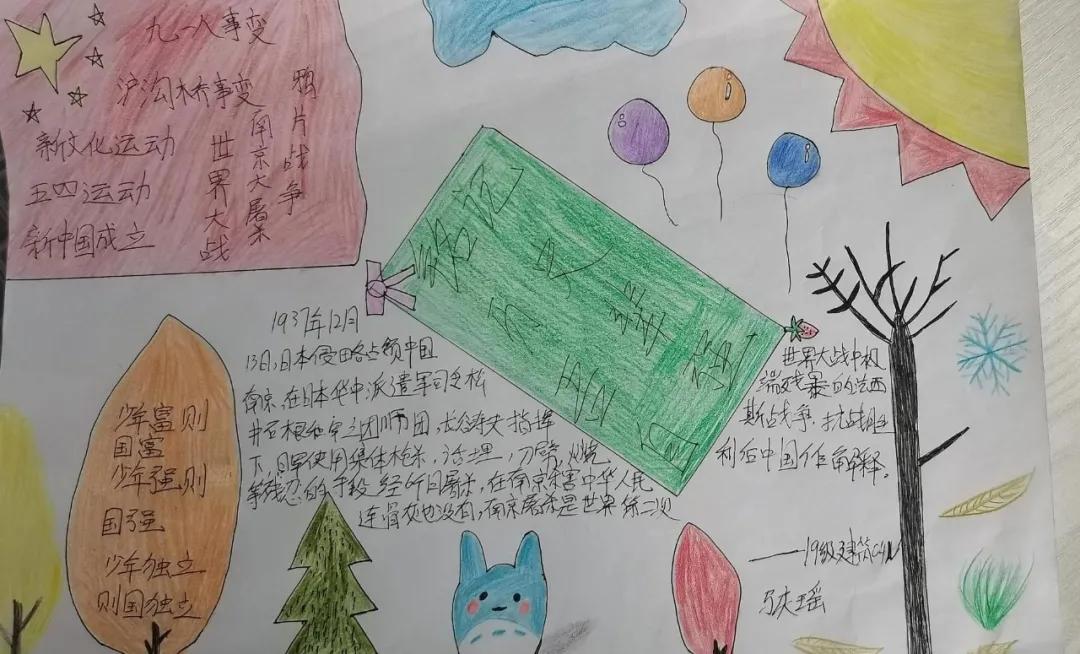 九一八事变
沪沟桥事变
新文化运动
五四运动
新中国成立
世界大战
南京大屠杀
鸦片战争
少年富则
国富
少年强则
国强
少年独立
则国独立
1937年12月
13日,日本侵略占领中国
南京,在日本华中派遣军司令松
井石根和 师团,长谷寿夫指挥
下,日军使用集体枪杀,活埋,刀劈,火烧
等残忍的手段经 日屠杀,在南京杀害中华人民
连骨灰也没有,南京屠杀是世界第二次
世界大战中极
端残暴的法西
斯战争,抗战胜
利后中国作解释。
——19级建筑